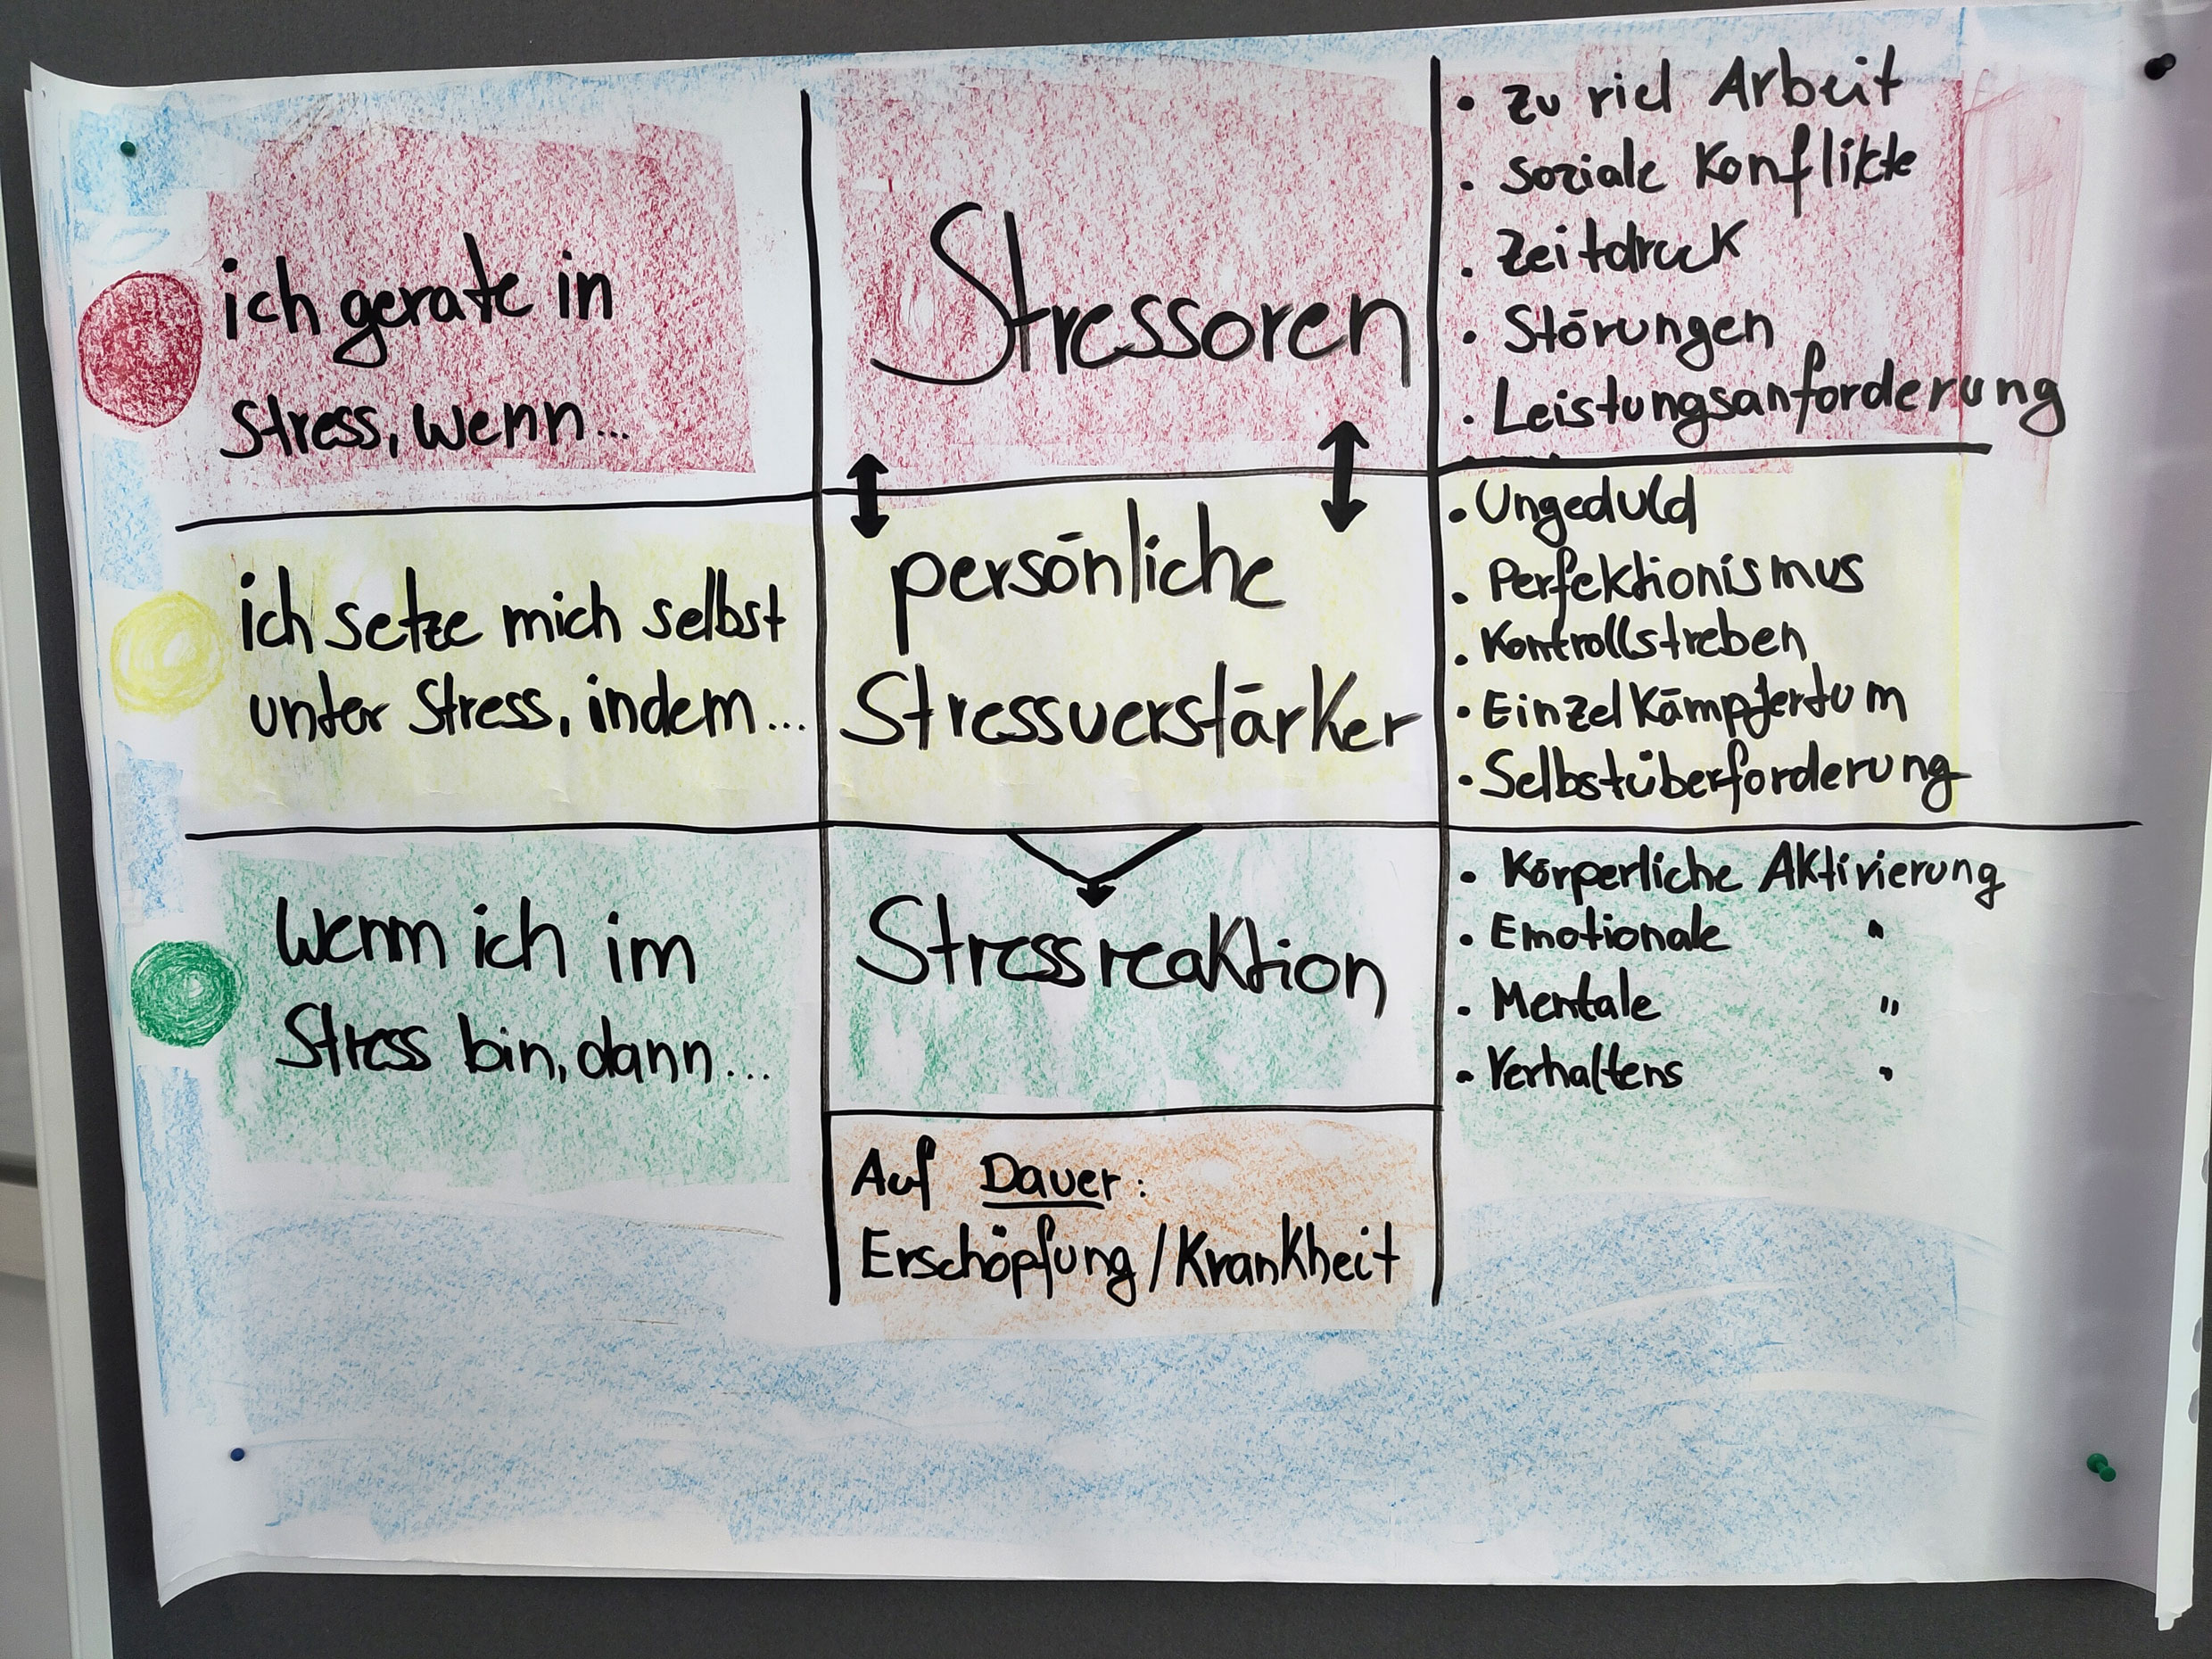 ich gerate in
Stress, wenn...
Stressoren
• zu viel Arbeit
• soziale Konflikte
• Zeitdruck
• Störungen
• Leistungsanforderung
ich setze mich selbst
unter Stress, indem...
persönliche
Stressverstärker
• Ungeduld
• Perfektionismus
• Kontrollstreben
• Einzelkämpfertum
• Selbstüberforderung
Wenn ich im
Stress bin, dann...
Stressreaktion
• Körperliche Aktivierung
• Emotionale "
• Mentale "
• Verhaltens "
Auf Dauer:
Erschöpfung/Krankheit